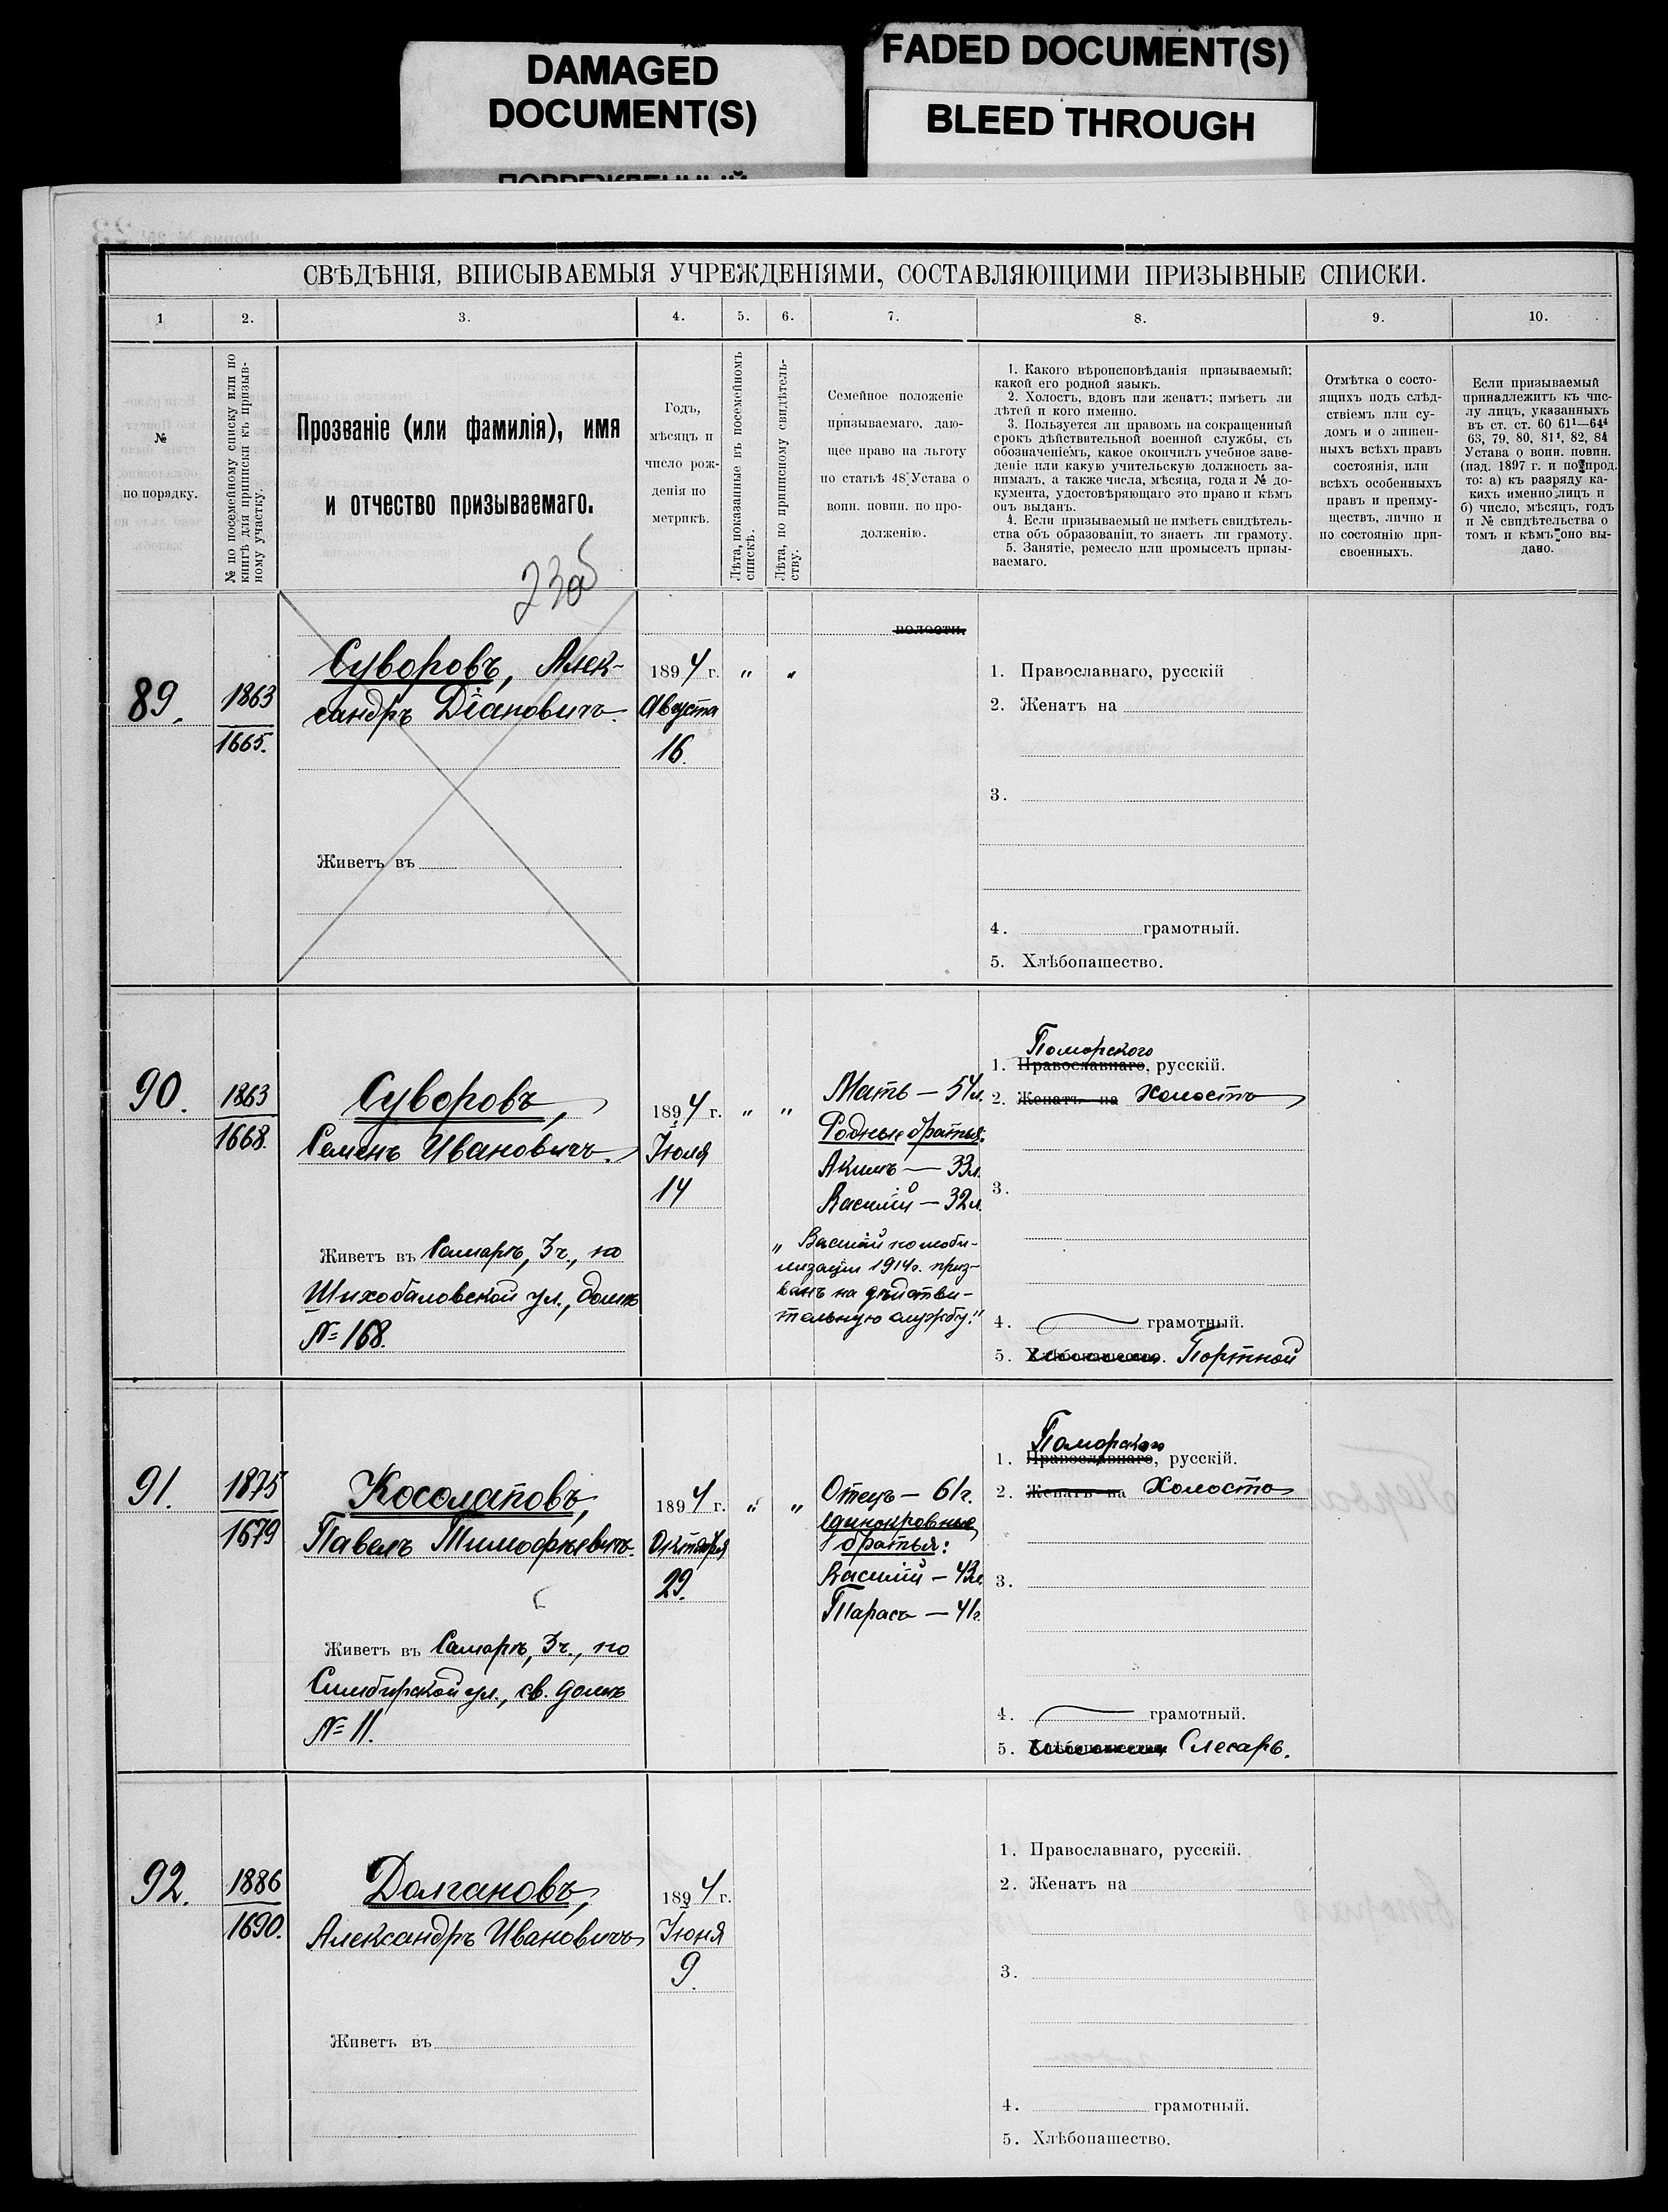 DAMAGED
DOCUMENT(S)
FADED DOCUMENT(S)
BLEED THROUGH
СВѢДѢНІЯ, ВПИСЫВАЕМЫЯ УЧРЕЖДЕНІЯМИ, СОСТАВЛЯЮЩИМИ ПРИЗЫВНЫЕ СПИСКИ.
1 2. 3. 4. 5. 6. 7. 8. 9. 10.
№
по порядку.
№ по посемейному списку или по
книгѣ для приписки къ призыв-
ному участку.
Прозваніе (или фамилія), имя
и отчество призываемаго.
Годъ,
мѣсяцъ и
число рож-
денія по
метрикѣ.
Лѣта, показанные въ посемейномъ
спискѣ.
Лѣта, по приписному свидѣтель-
ству.
Семейное положеніе
призываемаго, даю-
щее право на льготу
по статьѣ 48 Устава о
воин. повин. по про-
долженію.
1. Какого вѣроисповѣданія призываемый;
какой его родной языкъ.
2. Холостъ, вдовъ или женатъ; имѣетъ ли
дѣтей и кого именно.
3. Пользуется ли правомъ на сокращенный
срокъ дѣйствительной военной службы, съ
обозначеніемъ, какое окончилъ учебное заве-
деніе или какую учительскую должность за-
нималъ, а также числа, мѣсяца, года и № до-
кумента, удостовѣряющаго это право и кѣмъ
онъ выданъ.
4. Если призываемый не имѣетъ свидѣтель-
ства объ образованіи, то знаетъ ли грамоту.
5. Занятіе, ремесло или промыселъ призы-
ваемаго.
Отмѣтка о состо-
ящихъ подъ слѣд-
ствіемъ или су-
домъ и о лишен-
ныхъ всѣхъ правъ
состоянія, или
всѣхъ особенныхъ
правъ и преиму-
ществъ, лично и
по состоянію при-
своенныхъ.
Если призываемый
принадлежитъ къ чис-
лу лицъ, указанныхъ
въ ст. ст. 60 61¹—64⁴
63, 79, 80, 81¹, 82, 84
Устава о воин. повин.
(изд. 1897 г. и по прод.
то: а) къ разряду ка-
кихъ именно лицъ и
б) число, мѣсяцъ, годъ
и № свидѣтельства о
томъ и кѣмъ оно вы-
дано.
23об
волости.
89.
1863
1665.
Суворовъ, Алек-
сандръ Діановичъ.
Живетъ въ
1894 г. " "
Августа
16.
1. Православнаго, русскій
2. Женатъ на
3.
4. грамотный.
5. Хлѣбопашество.
90.
1863
1668.
Суворовъ,
Семенъ Ивановичъ.
Живетъ въ Самарѣ, 3ч., по
Шихобаловской ул., домъ
№ 168.
1894 г. " "
Іюля
14
Мать — 54 л.
Родные братья:
Акимъ — 33 л.
Василій — 32 л.
„ Василій по моби-
лизаціи 1914 г. приз-
ванъ на дѣйстви-
тельную службу."
Поморского
1. Православнаго, русскій.
2. Женатъ на Холостъ
3.
4. грамотный.
5. Хлѣбопашество. Портной
91.
1875
1679
Косолаповъ,
Павелъ Тимофѣевичъ.
Живетъ въ Самарѣ, 3ч., по
Симбирской ул., св. домъ
№ 11.
1894 г. " "
Октября
29.
Отецъ — 61 г.
Единокровные
братья:
Василій — 43 л.
Тарасъ — 41 г.
Поморского
1. Православнаго, русскій.
2. Женатъ на Холостъ
3.
4. грамотный.
5. Хлѣбопашество Слесарь.
92.
1886
1690.
Долгановъ,
Александръ Ивановичъ
Живетъ въ
1894 г.
Іюня
9.
1. Православнаго, русскій.
2. Женатъ на
3.
4. грамотный.
5. Хлѣбопашество.